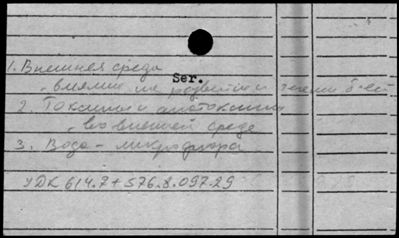 1. Внешняя среда
Ser.
, влияние на развитие и течение б-ей
2. Токсины и анатоксины
, во внешней среде
3. Вода - микрофлора
УДК 614.7+576.8.097.29